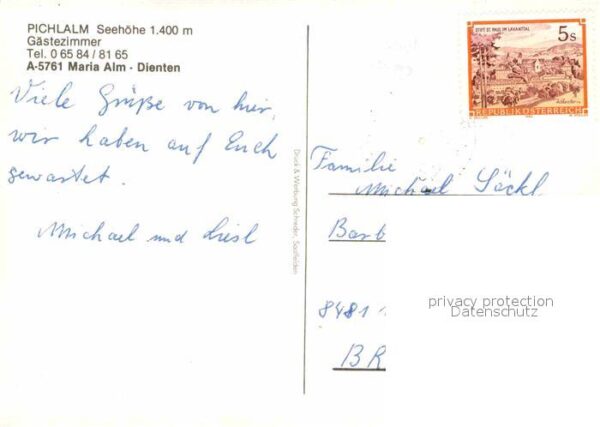 PICHLALM Seehöhe 1.400 m
Gästezimmer
Tel. 0 65 84 / 81 65
A-5761 Maria Alm - Dienten
Viele Grüße von hier,
wir haben auf Euch
gewartet.
Michael und Liesl
Druck & Werbung Schneider, Saalfelden
STIFT ST. PAUL IM LAVANTTAL
5s
REPUBLIK ÖSTERREICH
Familie
Michael Söckl
Barb
8481
BR
privacy protection
Datenschutz